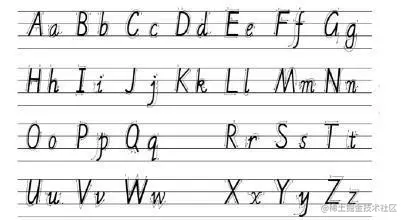 Aa Bb Cc Dd Ee Ff Gg
Hh Ii Jj Kk Ll Mm Nn
Oo Pp Qq Rr Ss Tt
Uu Vv Ww Xx Yy Zz
@稀土掘金技术社区